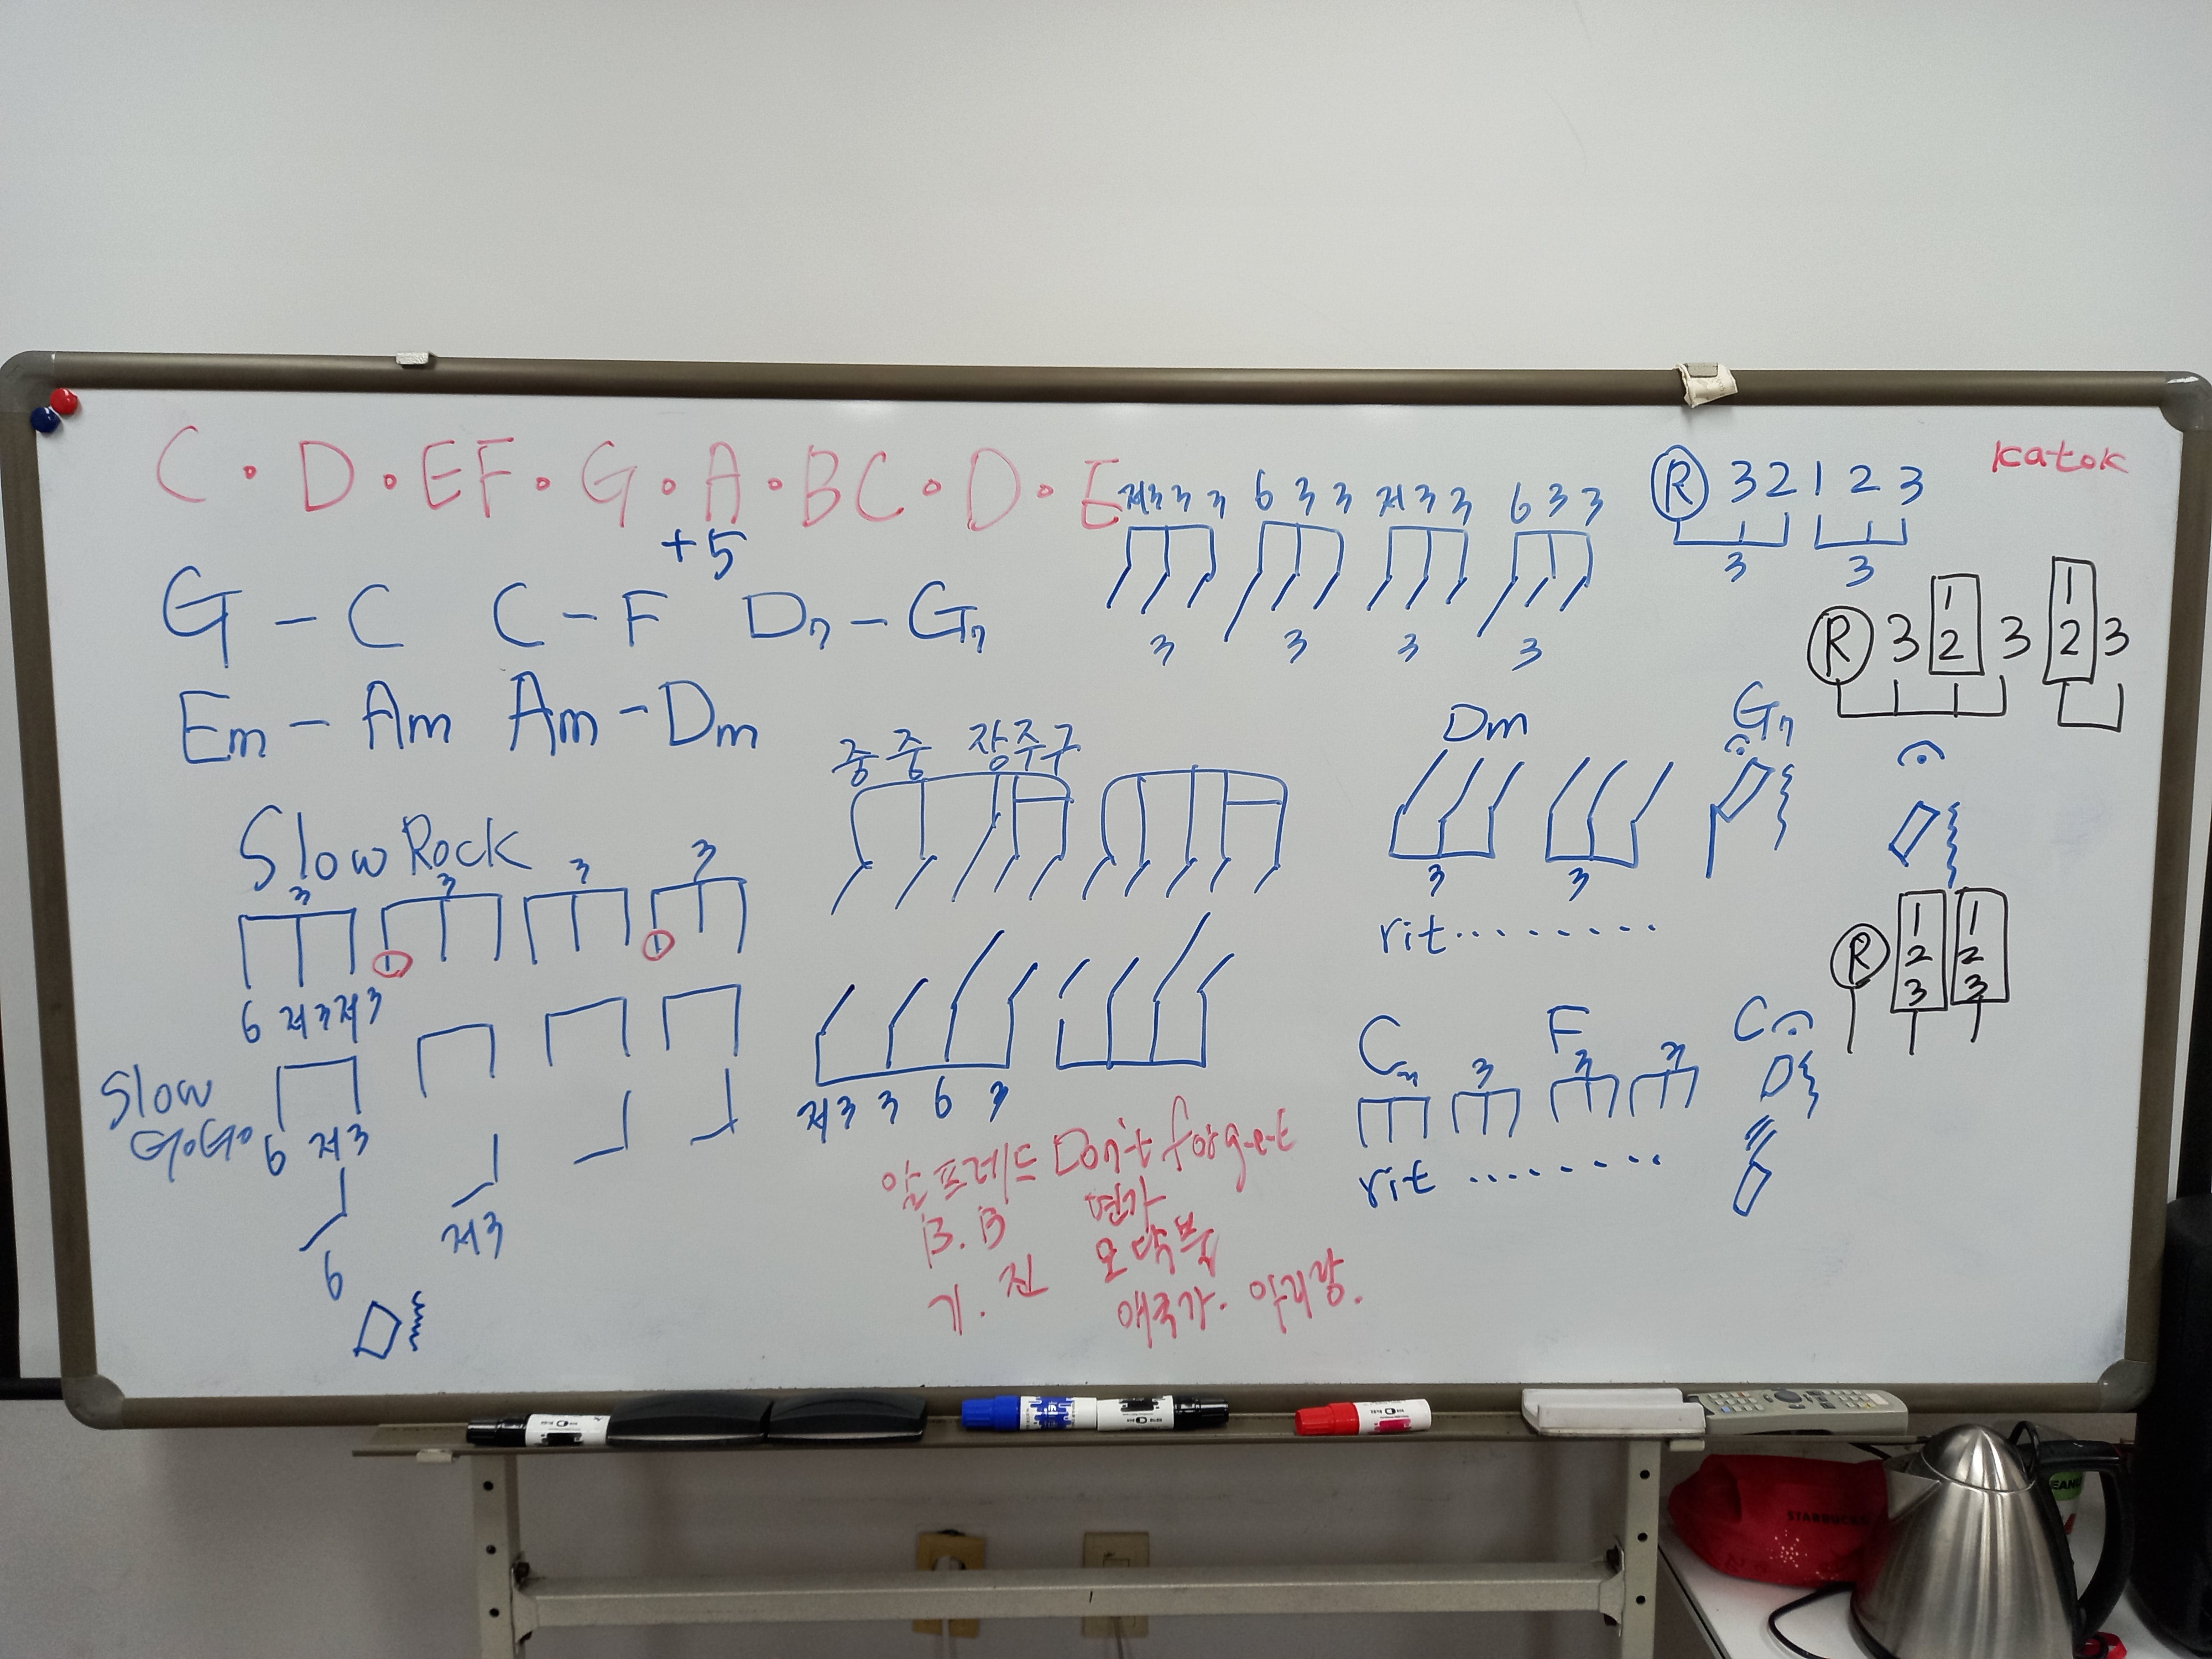 C · D · E F · G · A · B C · D · E
katok
저3 3 3 6 3 3 저3 3 6 3 3
3 3 3 3
Ⓡ 3 2 1 2 3
3 3
+5
G - C C - F D7 - G7
Em - Am Am - Dm
Ⓡ 3 1 2 3 1 2 3
중 중 장 주 구
Dm G7
3 3
rit.........
Slow Rock
3 3 3 3
① ①
6 저3 저3
저3 3 6 3
Ⓡ 1 2 3 1 2 3
C F C
3 3 3 3
rit .........
Slow
GoGo
6 저3
6 저3
알프레드 Don't forget
B.B 연가
기. 전
애국가.